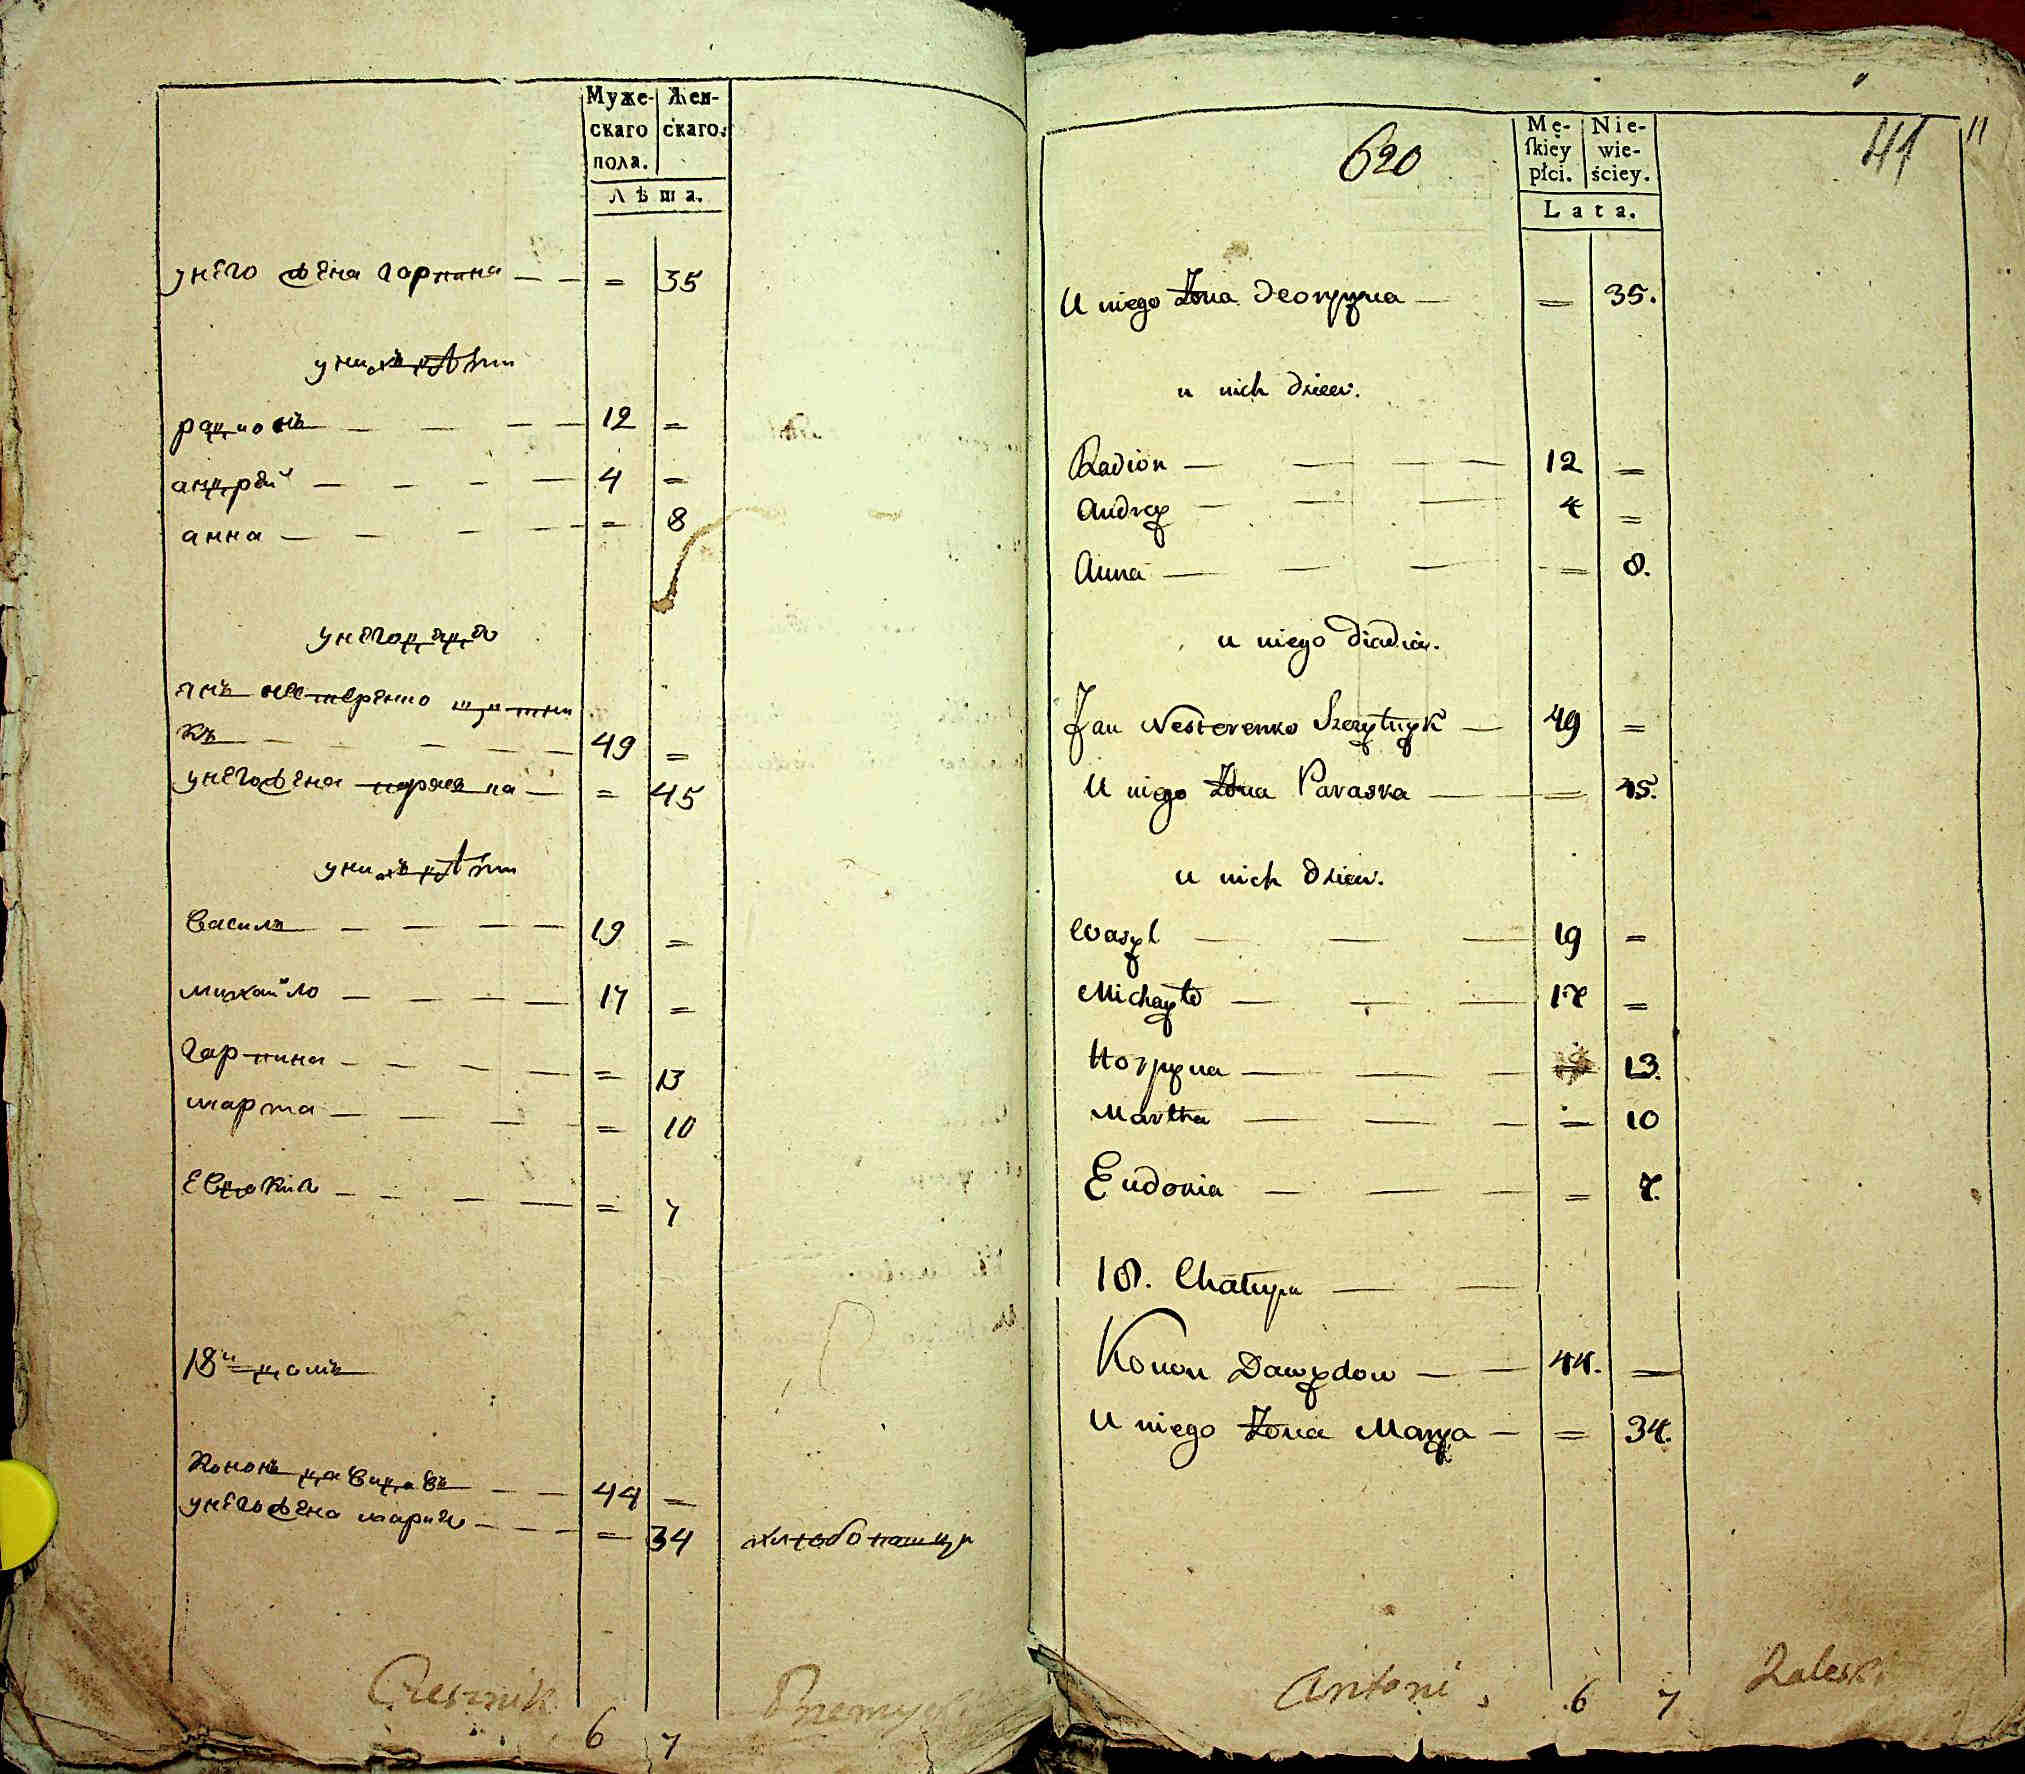 Муже- Жен-
скаго скаго.
пола.
Лѣта.
унего жена гарпина — — = 35
унихъ дѣти
радионъ — — — — 12 =
андрей — — — — 4 =
анна — — — — = 8
унего дядя
янъ нестеренко шудтни
къ — — — — — 49 =
унего жена параска — = 45
унихъ дѣти
Василь — — — — 19 =
михайло — — — — 17 =
гарпина — — — — = 13
марта — — — — = 10
Евдокия — — — — = 7
18й домъ
Кононъ давидовъ — — 44 =
унего жена мария — — — = 34 хлѣбопашцы
Czesnik
6 7
620
Mę- Nie-
ſkiey wie-
płci. ściey.
Lata.
41
11
U niego Żona Horpyna — = 35.
u nich dzieci.
Radion — — — — 12 =
Andrey — — — 4 =
Anna — — — — = 8.
u niego diadia.
Jan Nesterenko — 49 =
U niego Żona Paraska — — = 45.
u nich dzieci.
Wasyl — — — 19 =
Michayło — — — 17 =
Horpyna — — — 13.
Martha — — — = 10
Eudokia — — — = 7.
18. Chałupa — —
Konon Dawydow — — 44. =
U niego Żona Marya — = 34.
Antoni Zaleski
6 7